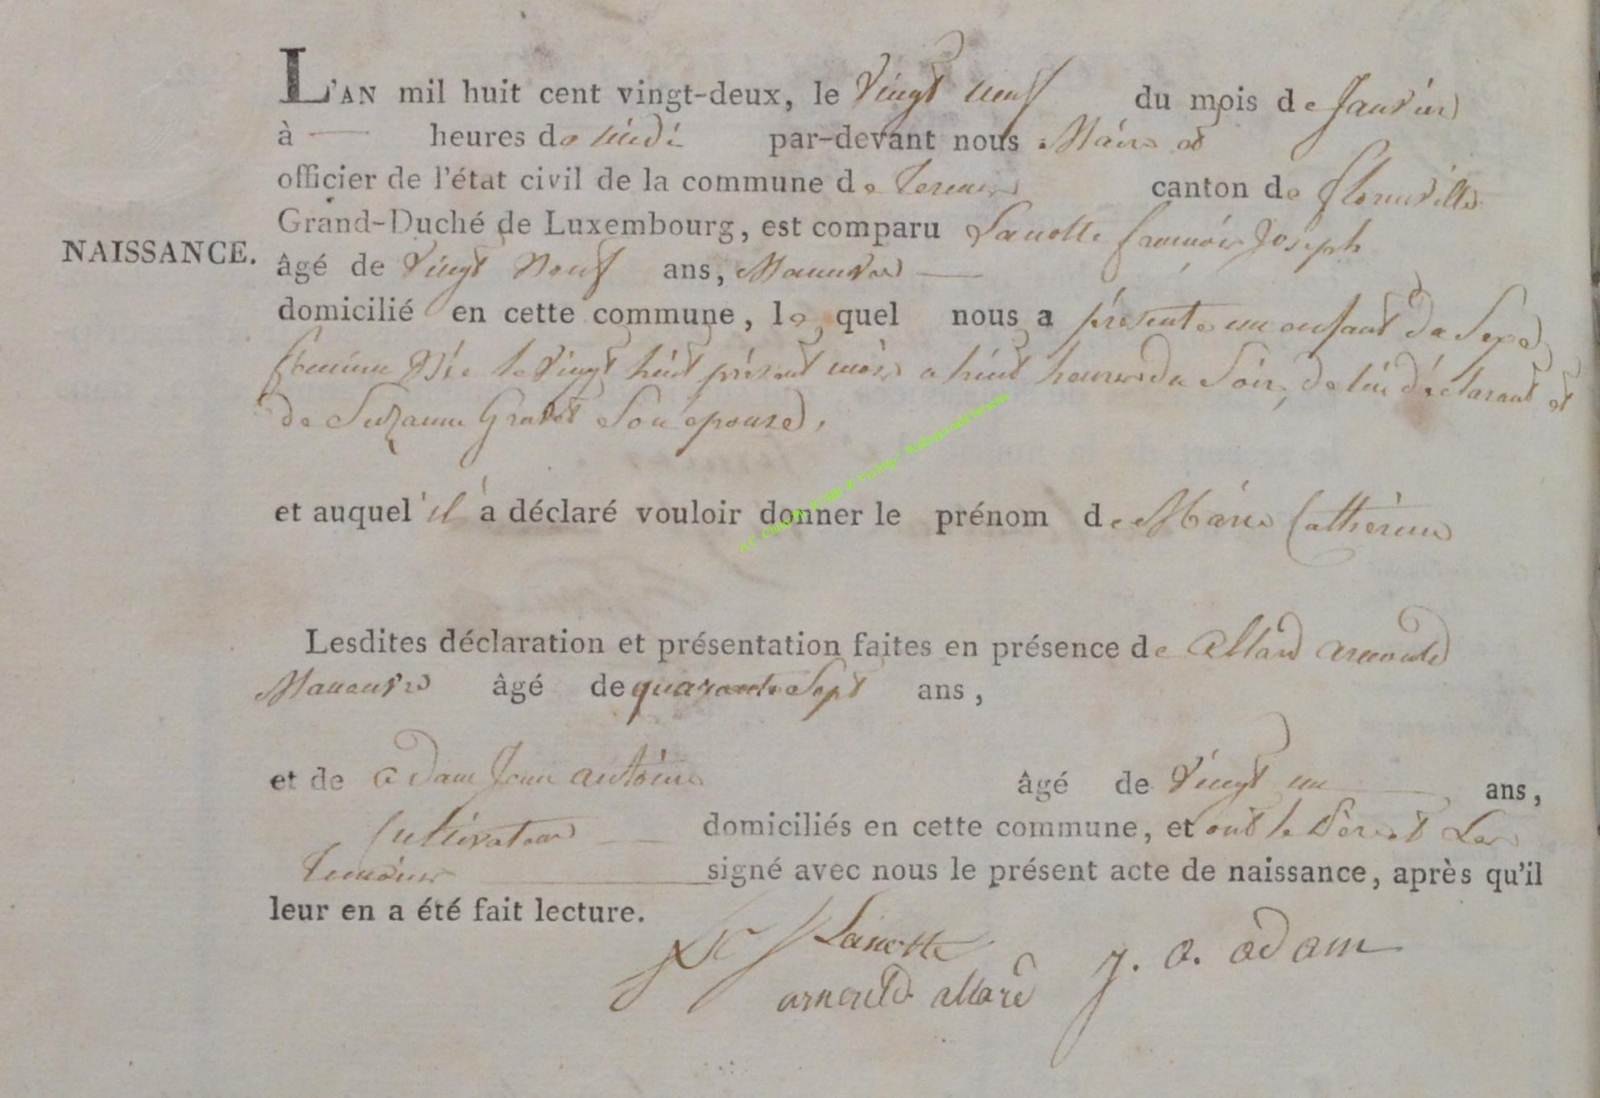 L'AN mil huit cent vingt-deux, le vingt neuf du mois de Janvier
à — heures de midi par-devant nous Maire et
officier de l'état civil de la commune de canton de florenville
NAISSANCE.
Grand-Duché de Luxembourg, est comparu Lanotte francois Joseph
âgé de vingt neuf ans, Manuvre —
domicilié en cette commune, le quel nous a présente un enfant du Sexe
féminin Née le vingt huit présent mois a huit heures du Soir, de lui déclarant et
de Suzanne Gravet Son epouse,
et auquel il a déclaré vouloir donner le prénom de Marie Catherine
Lesdites déclaration et présentation faites en présence de allard arnould
Manuvre âgé de quarante Sept ans,
et de adam Jean antoine âgé de vingt un — ans,
Cultivateur — domiciliés en cette commune, et ont le Les
temoins — signé avec nous le présent acte de naissance, après qu'il
leur en a été fait lecture.
Lanotte
arnould allard j. a. adam